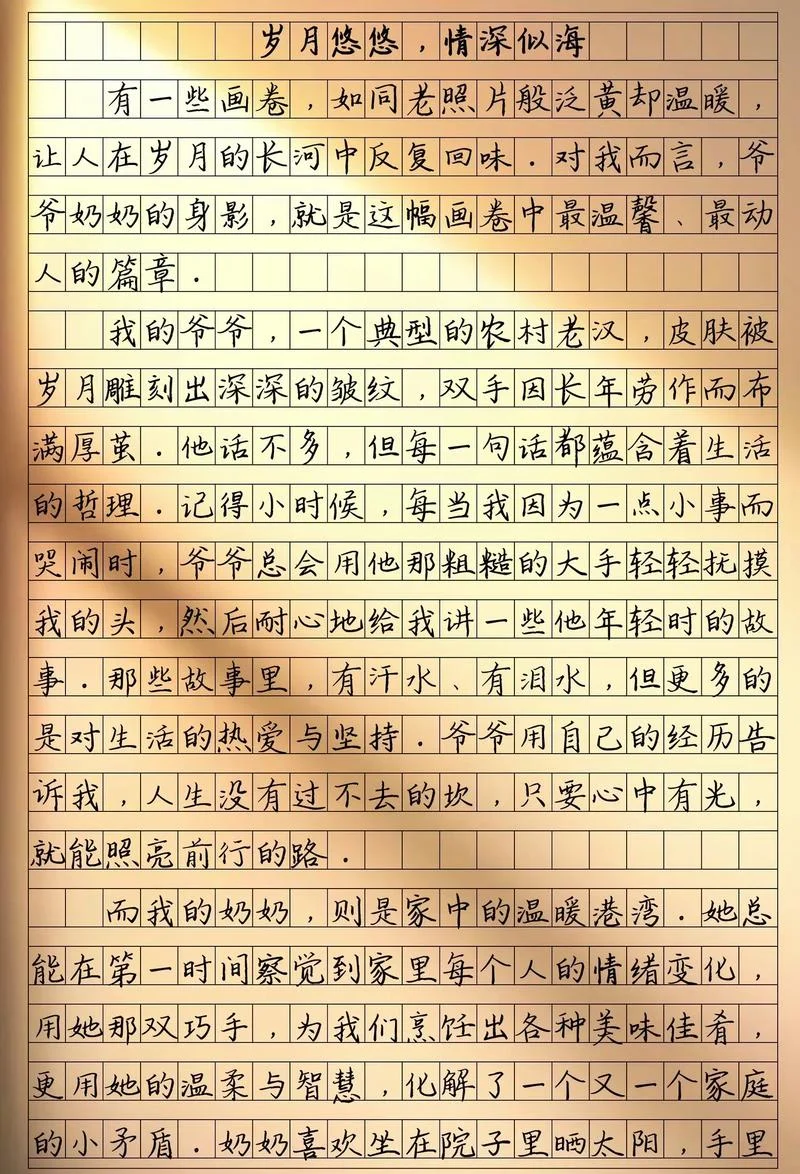 岁月悠悠，情深似海
有一些画卷，如同老照片般泛黄却温暖，
让人在岁月的长河中反复回味．对我而言，爷
爷奶奶的身影，就是这幅画卷中最温馨、最动
人的篇章．
我的爷爷，一个典型的农村老汉，皮肤被
岁月雕刻出深深的皱纹，双手因长年劳作而布
满厚茧．他话不多，但每一句话都蕴含着生活
的哲理．记得小时候，每当我因为一点小事而
哭闹时，爷爷总会用他那粗糙的大手轻轻抚摸
我的头，然后耐心地给我讲一些他年轻时的故
事．那些故事里，有汗水、有泪水，但更多的
是对生活的热爱与坚持．爷爷用自己的经历告
诉我，人生没有过不去的坎，只要心中有光，
就能照亮前行的路．
而我的奶奶，则是家中的温暖港湾．她总
能在第一时间察觉到家里每个人的情绪变化，
用她那双巧手，为我们烹饪出各种美味佳肴，
更用她的温柔与智慧，化解了一个又一个家庭
的小矛盾．奶奶喜欢坐在院子里晒太阳，手里